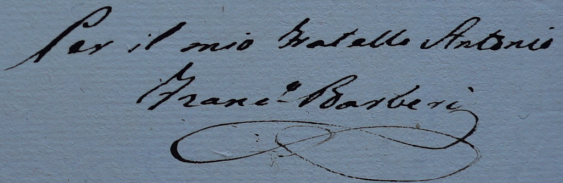 Per il mio Fratello Antonio
Franc.º Barberi